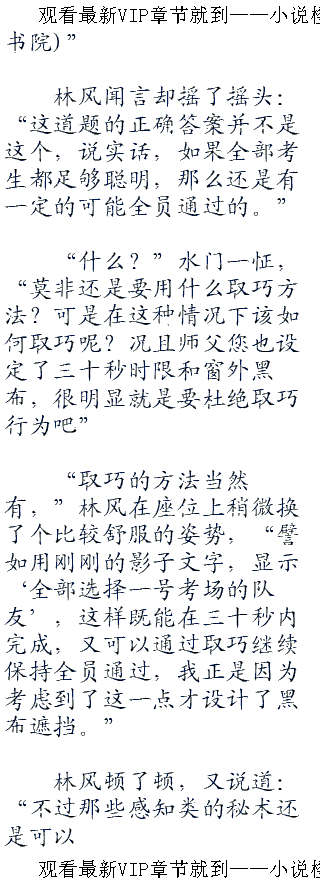 观看最新VIP章节就到——小说检
书院)”
林风闻言却摇了摇头：
“这道题的正确答案并不是
这个，说实话，如果全部考
生都足够聪明，那么还是有
一定的可能全员通过的。”
“什么？”水门一怔，
“莫非还是要用什么取巧方
法？可是在这种情况下该如
何取巧呢？况且师父您也设
定了三十秒时限和窗外黑
布，很明显就是要杜绝取巧
行为吧”
“取巧的方法当然
有，”林风在座位上稍微换
了个比较舒服的姿势，“譬
如用刚刚的影子文字，显示
‘全部选择一号考场的队
友’，这样既能在三十秒内
完成，又可以通过取巧继续
保持全员通过，我正是因为
考虑到了这一点才设计了黑
布遮挡。”
林风顿了顿，又说道：
“不过那些感知类的秘术还
是可以
观看最新VIP章节就到——小说检